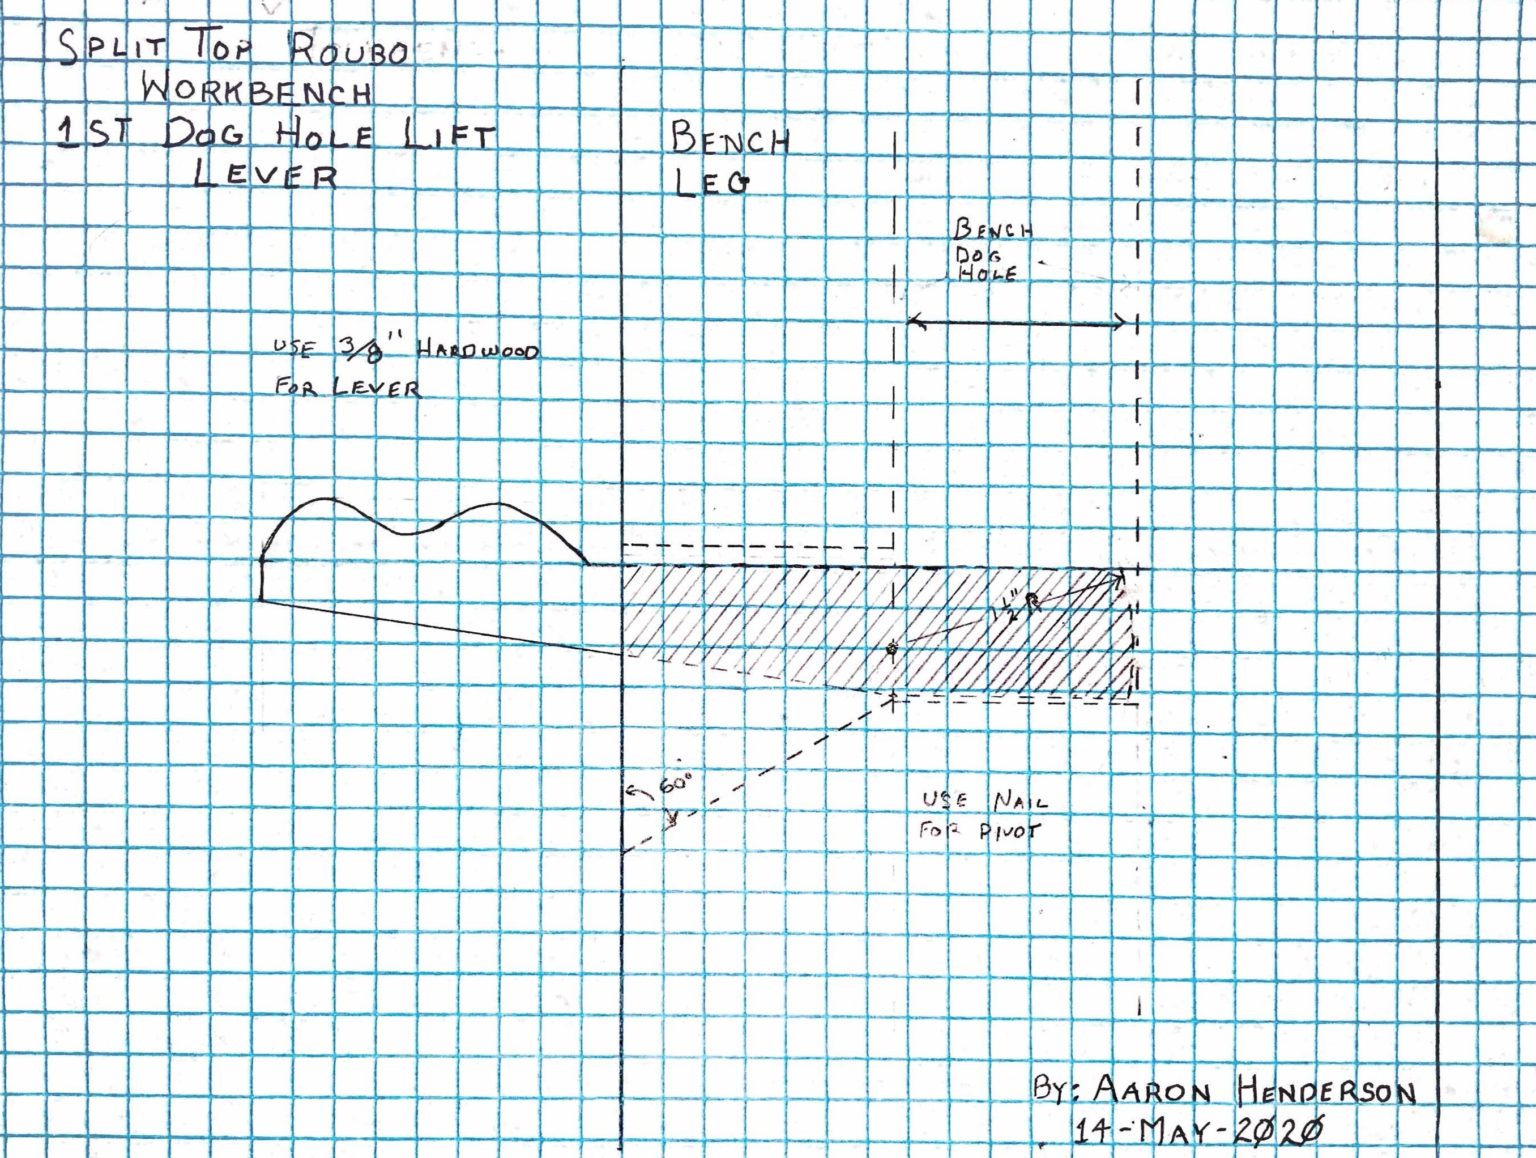 SPLIT TOP ROUBO
WORKBENCH
1ST DOG HOLE LIFT
LEVER
BENCH
LEG
BENCH
DOG
HOLE
USE 3/8" HARDWOOD
FOR LEVER
1 1/2" R
60°
USE NAIL
FOR PIVOT
BY: AARON HENDERSON
14-MAY-2020